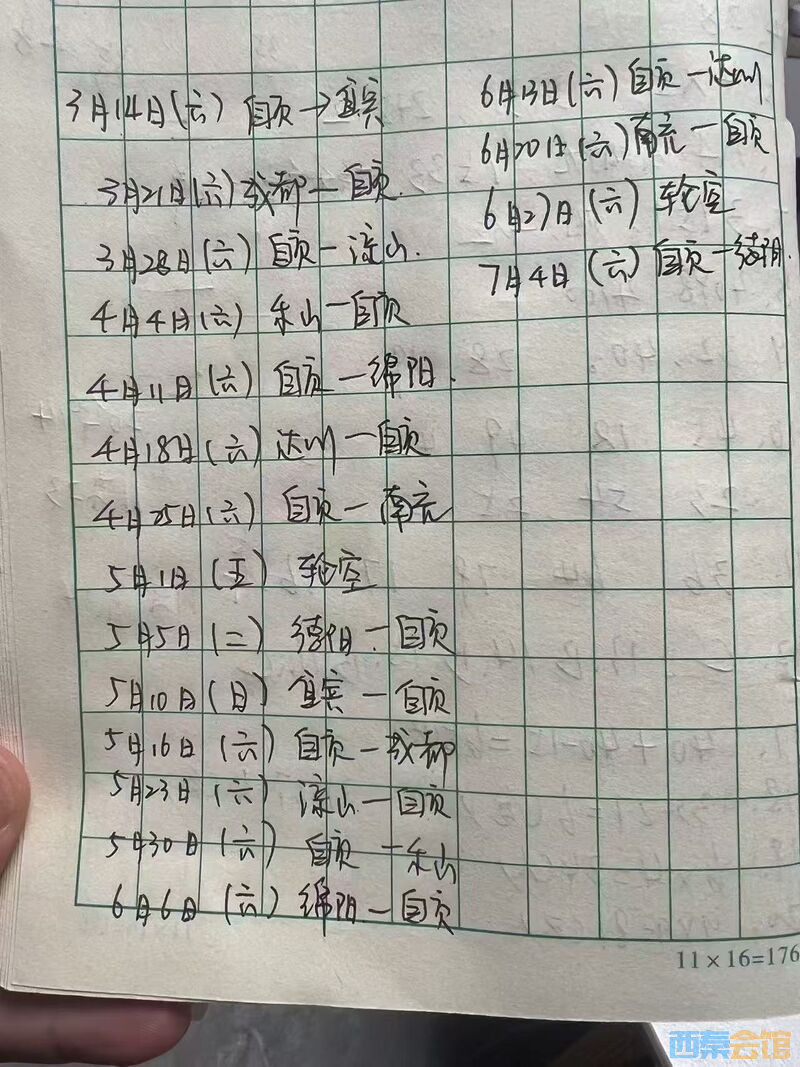 3月14日(六) 自贡→宜宾
3月21日(六)成都—自贡.
3月28日(六) 自贡—凉山.
4月4日(六) 乐山—自贡
4月11日(六) 自贡—绵阳.
4月18日(六)达州—自贡
4月25日(六) 自贡—南充
5月1日(五) 轮空
5月5日(二) 德阳—自贡
5月10日(日) 宜宾—自贡
5月16日(六) 自贡—成都
5月23日(六) 凉山—自贡
5月30日(六) 自贡—乐山
6月6日(六)绵阳—自贡
6月13日(六)自贡—达州
6月20日(六)南充—自贡
6月27日(六) 轮空
7月4日(六) 自贡—德阳.
11×16=176
西秦会馆